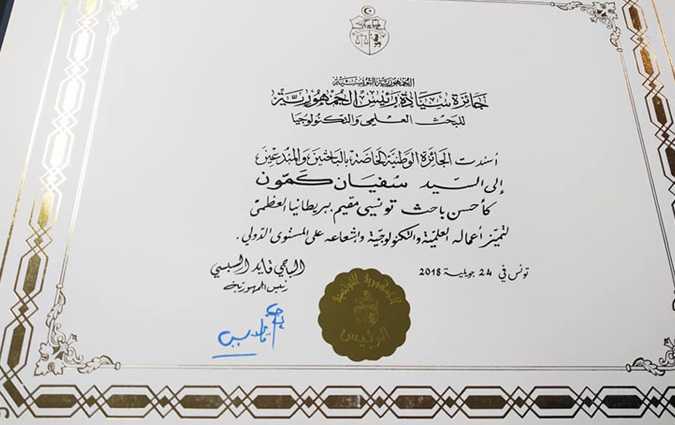 الجمهورية التونسية
جائزة سيادة رئيس الجمهورية
للبحث العلمي والتكنولوجيا
أسندت الجائزة الوطنية الخاصة بالباحثين والمبدعين
إلى السيد سفيان كمون
كأحسن باحث تونسي مقيم ببريطانيا العظمى
لتميز أعماله العلمية والتكنولوجية وإشعاعه على المستوى الدولي.
تونس في 24 جويلية 2018
الباجي قايد السبسي
رئيس الجمهورية
الجمهورية التونسية
الرئيس